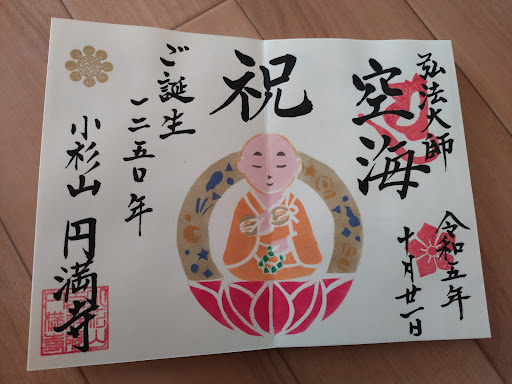 弘法大師
空海
祝
ご誕生
一二五〇年
小杉山 円満寺
令和五年
十月廿一日